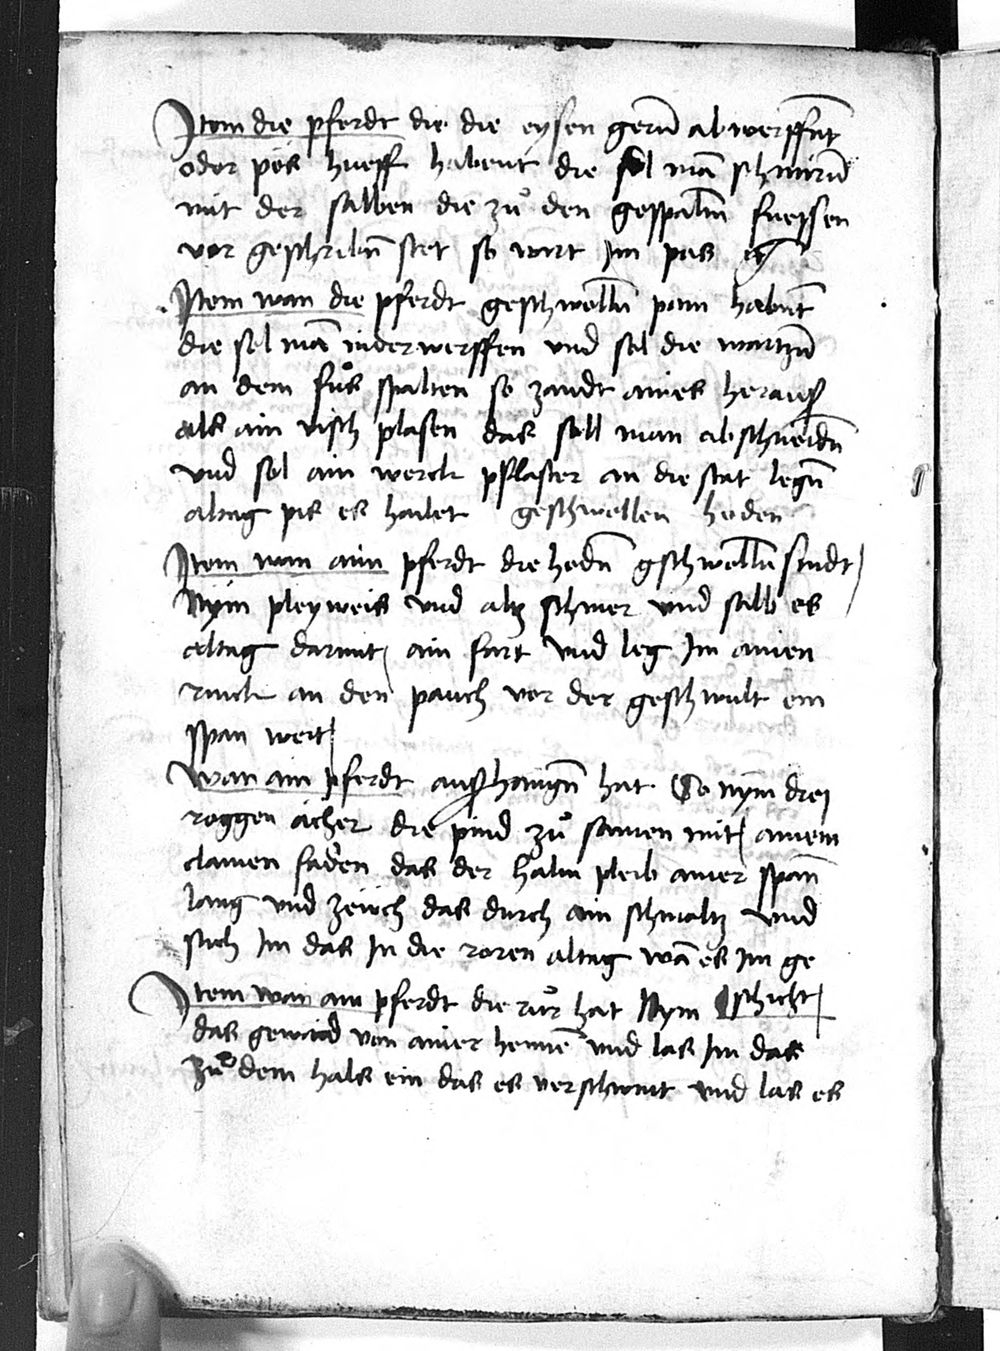 Item die pferdt die die eysen gerñ abwerffent
oder pös hueff habent die sol mā schmirn̄
mit der salben die zů den gespaltn̄ fuessen
vor geschribn̄ stet so wirt Im pas
Item wan die pferdt geschwolln̄ pain habent
die sol mā niderwerffen vnd sol die wartzn̄
an dem fůs spalten so zandt aines heraus
als ain visch plasen das soll man abschneidn̄
vnd sol ain werch pflaster an die stat legn̄
altag pis es hailet geschwollen hoden
Item wan aim pferdt die hodn̄ gschwolln̄ sindt
Nym pleyweis vnd altz schmer vnd salb es
altag darmit ain fart vnd leg Im ainen
rinck an den pauch vor der geschwulst ein
span weit
Wan ain pferdt aus hangn̄ hat So nym drei
roggen äher die pind zů samen mit ainem
clainen faden das der halm pleib ainer span̄
lang vnd zeuch das durch ain schmaltz vnd
stich Im das In die roren altag wā es Im ge
Item wan ain pferdt die růr hat Nym schicht
das gewaid von ainer hennē vnd las Im das
zů dem hals ein das es verschlint vnd las es